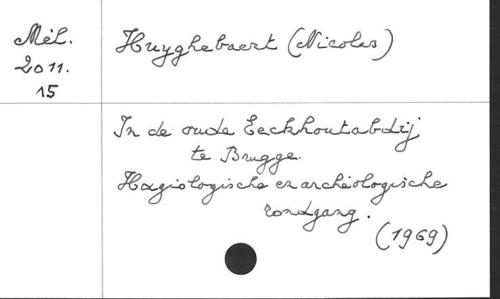 Mél.
2011.
15
Huyghebaert (Nicolas)
In de oude Eeckhoutabdij
te Brugge.
Hagiologische en archéologische
rondgang.
(1969)